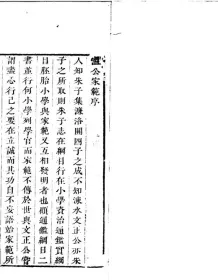 溫公家範序
人知朱子集濂洛關閩子之成不知涑水文正公亦朱
子之所取則朱子志在綱目行在小學資治通鑑實綱
目胚胎小學與家範又互相發明者也顧通鑑綱目二
書並行何小學列學官而家範不傳於世與文正公嘗
謂盡心行己之要在立誠而其功自不妄語始家範所